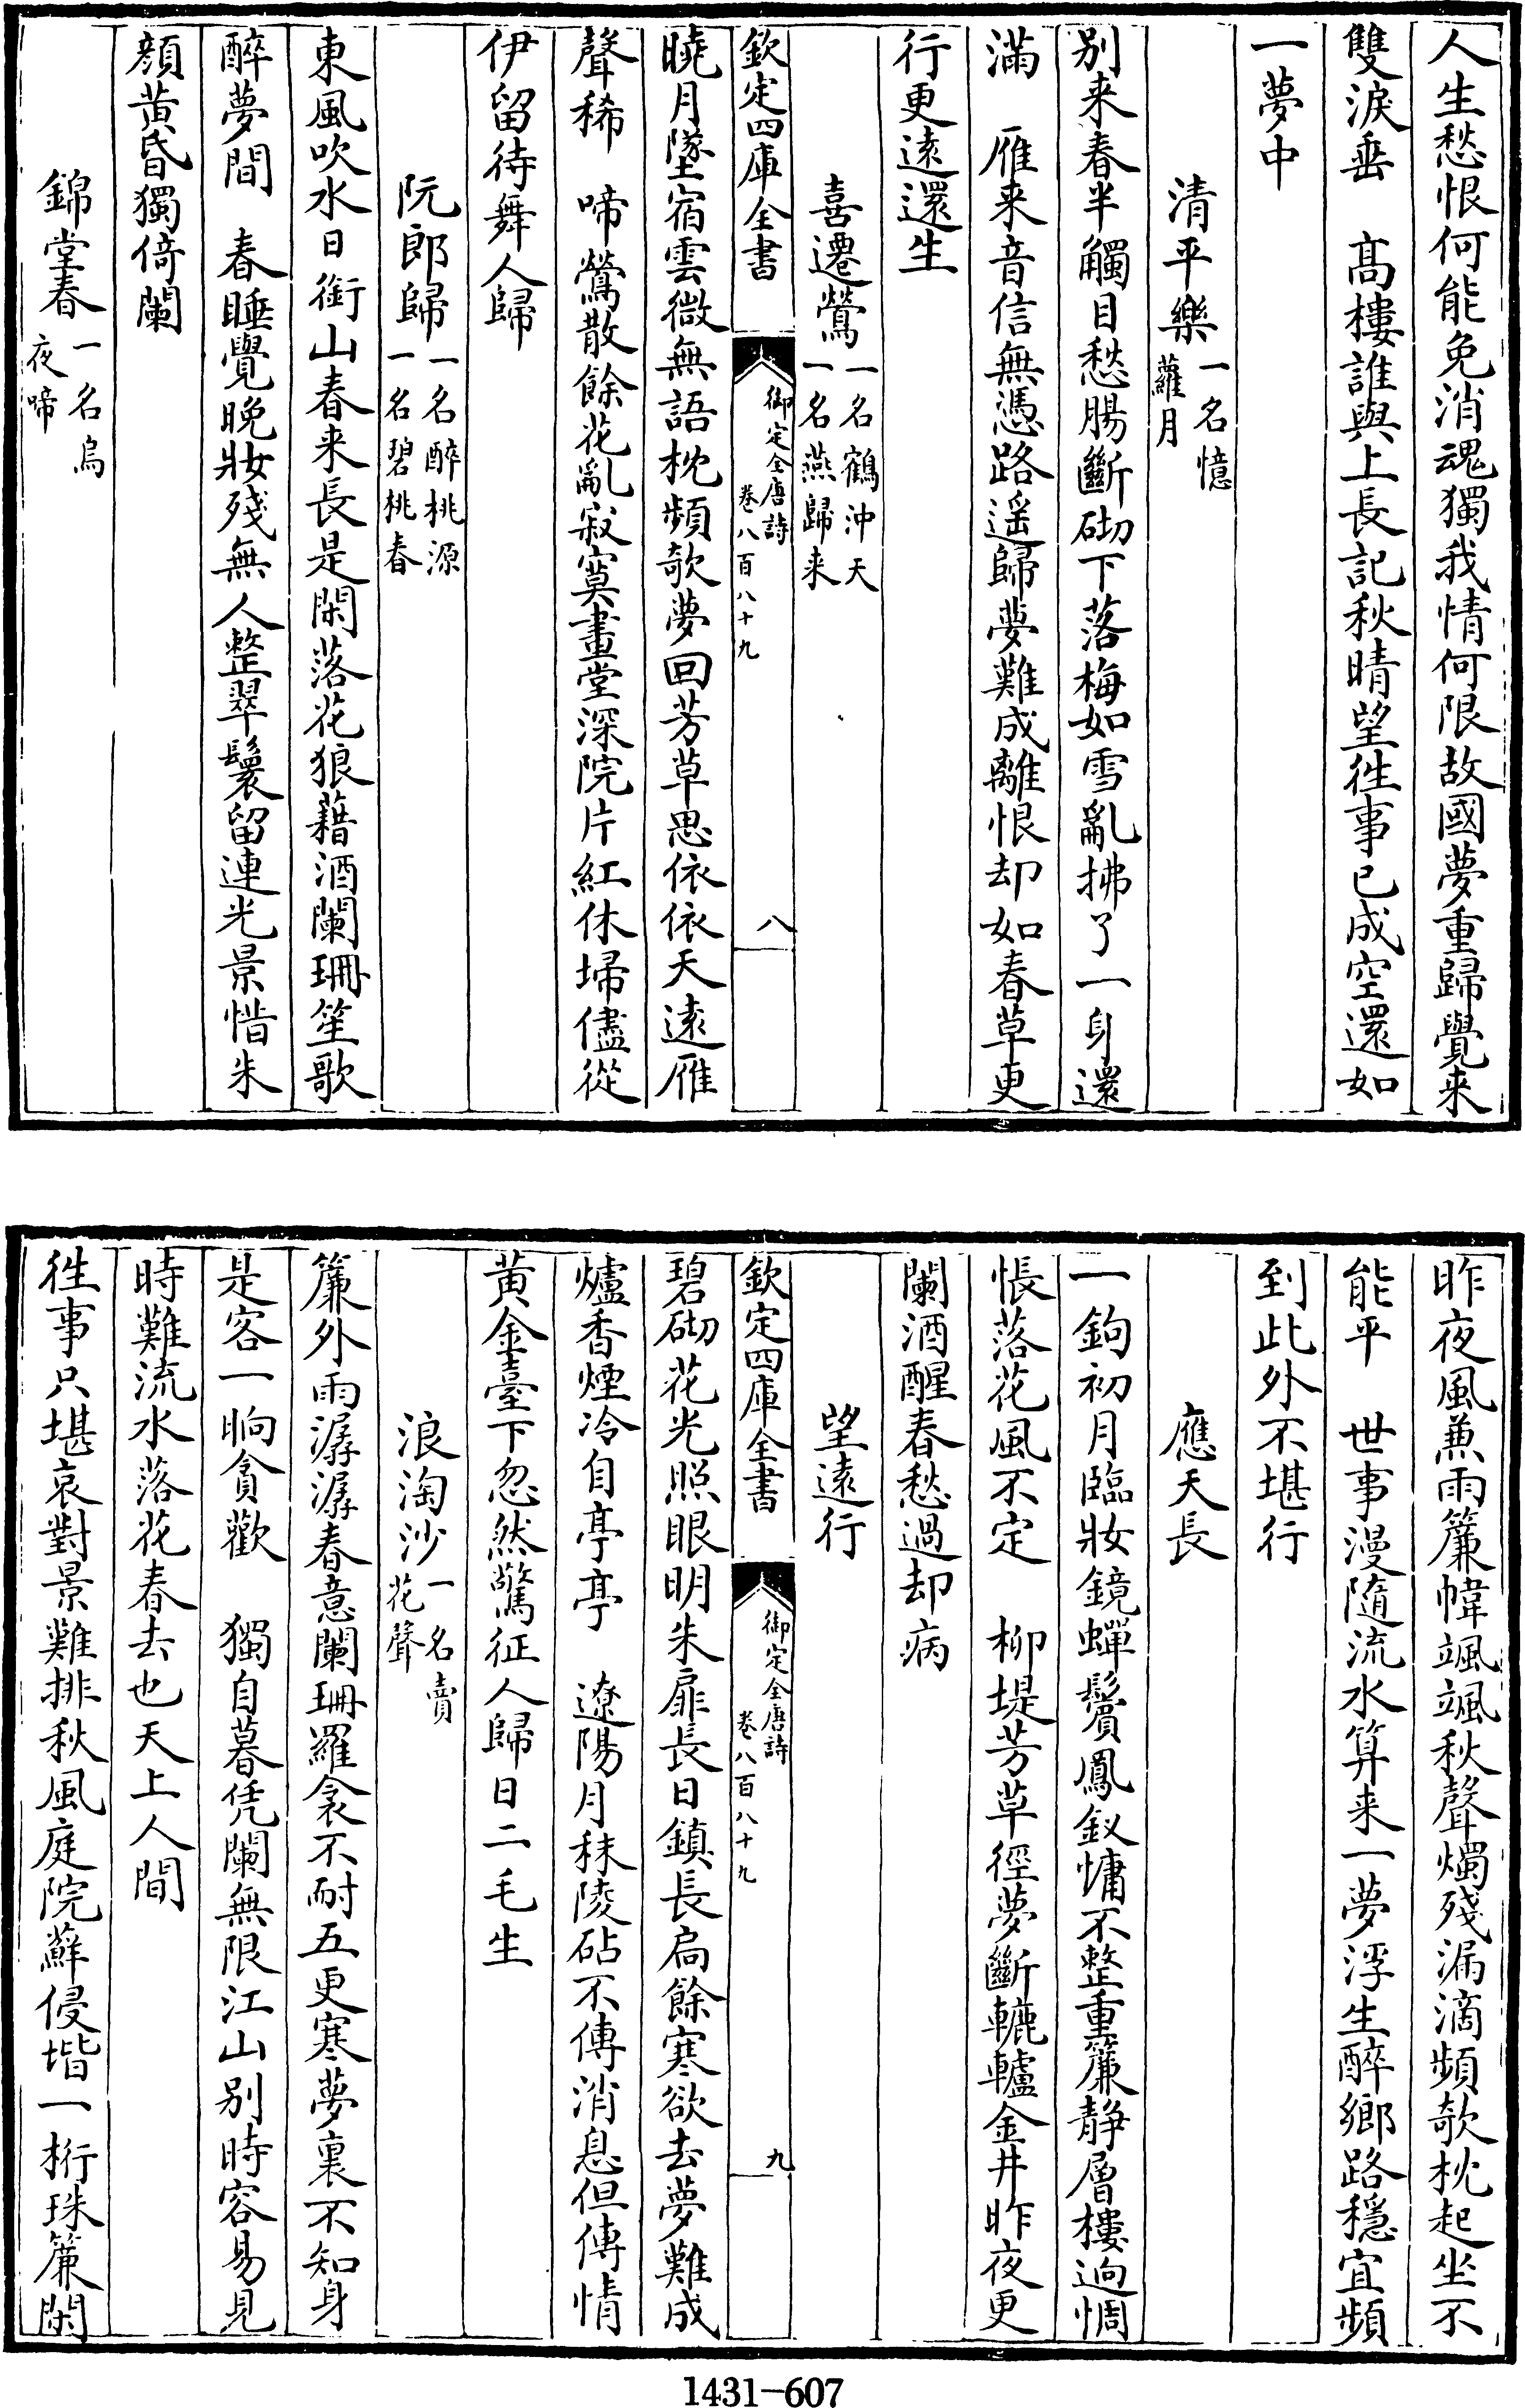 人生愁恨何能免消魂獨我情何限故國夢重歸覺来
雙淚垂　髙樓誰與上長記秋晴望徃事已成空還如
一夢中
清平樂一名憶
蘿月
别来春半觸目愁腸斷砌下落梅如雪亂拂了一身還
滿　雁来音信無憑路遥歸夢難成離恨却如春草更
行更遠還生
喜遷鶯一名鶴沖天
一名燕歸来
欽定四庫全書
御定全唐詩
卷八百八十九
八
曉月墜宿雲微無語枕頻欹夢回芳草思依依天遠雁
聲稀　啼鶯散餘花亂寂寞畫堂深院片紅休埽儘從
伊留待舞人歸
阮郎歸一名醉桃源
一名碧桃春
東風吹水日銜山春来長是閑落花狼藉酒闌珊笙歌
醉夢間　春睡覺晚妝殘無人整翠鬟留連光景惜朱
顔黄昏獨倚闌
錦堂春一名烏
夜啼
昨夜風兼雨簾幃颯颯秋聲燭殘漏滴頻欹枕起坐不
能平　世事漫隨流水算来一夢浮生醉鄉路穩宜頻
到此外不堪行
應天長
一鉤初月臨妝鏡蟬鬢鳳釵慵不整重簾静層樓迥惆
悵落花風不定　柳堤芳草徑夢斷轆轤金井昨夜更
闌酒醒春愁過却病
望遠行
欽定四庫全書
御定全唐詩
卷八百八十九
九
碧砌花光照眼明朱扉長日鎮長扃餘寒欲去夢難成
爐香煙冷自亭亭　遼陽月秣陵砧不傳消息但傳情
黄金臺下忽然驚征人歸日二毛生
浪淘沙一名賣
花聲
簾外雨潺潺春意闌珊羅衾不耐五更寒夢裏不知身
是客一晌貪歡　獨自暮凭闌無限江山别時容易見
時難流水落花春去也天上人間
徃事只堪哀對景難排秋風庭院蘚侵堦一桁珠簾閑
1431-607